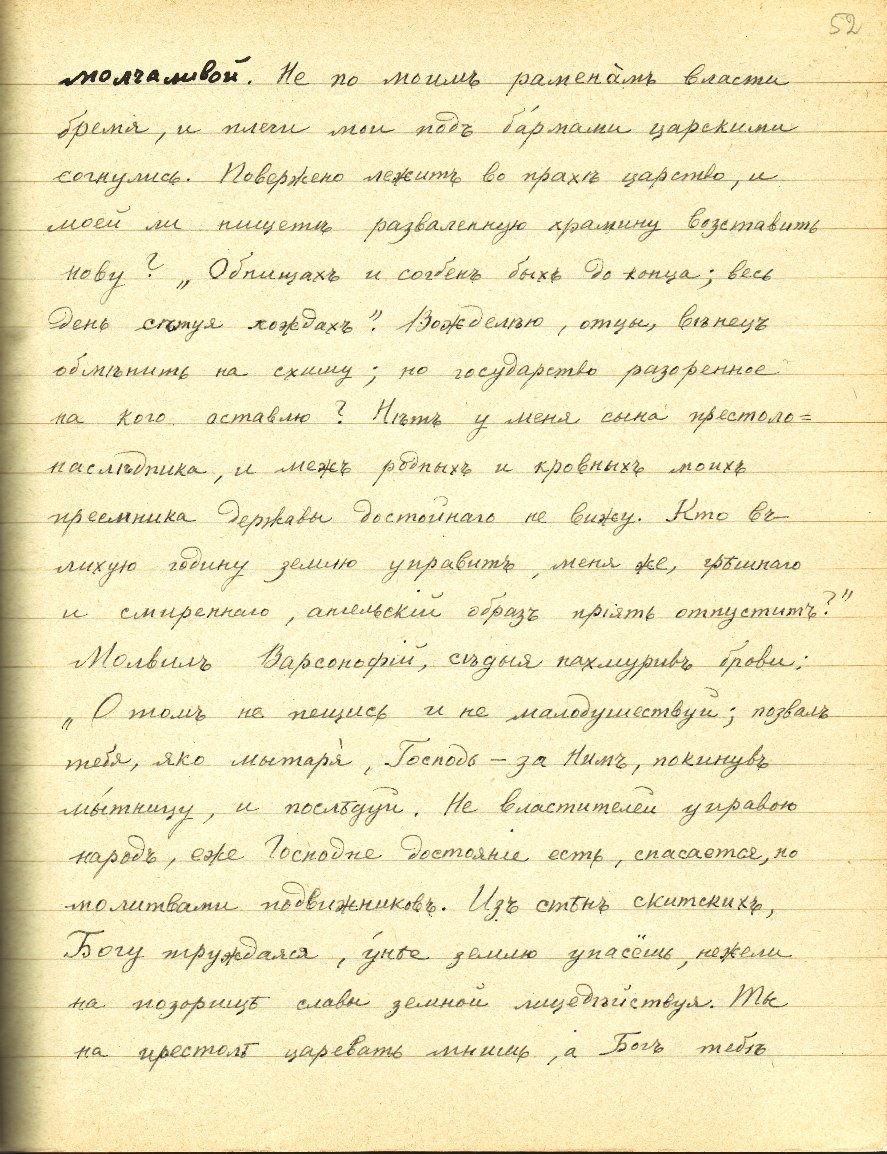 52
молчаливой. Не по моимъ рамена̀мъ власти
бремя, и плечи мои подъ ба́рмами царскими
согнулись. Повержено лежитъ во прахѣ царство, и
моей ли нищетѣ разваленную храмину возставить
нову? „Обнищахъ и согбенъ быхъ до конца; весь
день сѣтуя хождахъ”. Вожделѣю, отцы, вѣнецъ
обмѣнить на схиму; но государство разоренное
на кого оставлю? Нѣтъ у меня сына престоло=
наслѣдника, и межъ родныхъ и кровныхъ моихъ
преемника державы достойнаго не вижу. Кто въ
лихую годину землю управитъ, меня же, грѣшнаго
и смиреннаго, ангельскій образъ пріять отпуститъ?”
Молвилъ Варсонофій, сѣдыя нахмуривъ брови:
„О томъ не пещись и не малодушествуй; позвалъ
тебя, яко мытаря́, Господь – за Нимъ, покинувъ
мы́тницу, и послѣдуй. Не властителей управою
народъ, еже Господне достояніе есть, спасается, но
молитвами подвижниковъ. Изъ стѣнъ скитскихъ,
Богу труждаяся, у́нѣе землю упасёшь, нежели
на позорищѣ славы земной лицедѣйствуя. Ты
на престолѣ царевать мнишь, а Богъ тебѣ